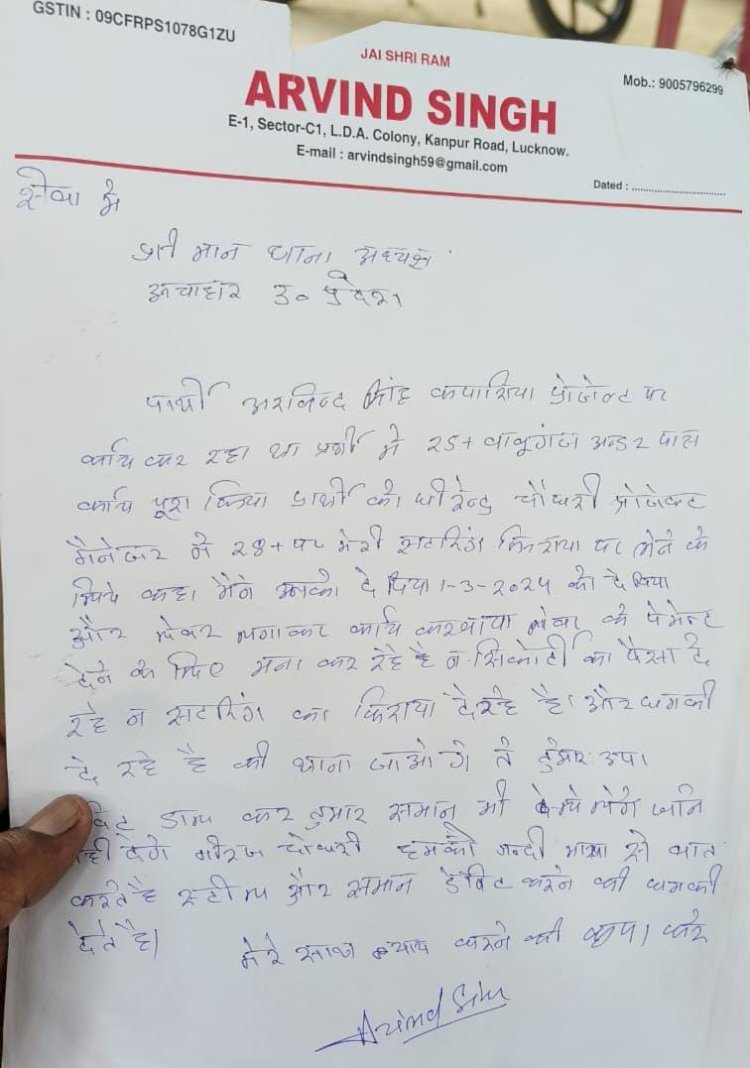 GSTIN : 09CFRPS1078G1ZU
JAI SHRI RAM
Mob.: 9005796299
ARVIND SINGH
E-1, Sector-C1, L.D.A. Colony, Kanpur Road, Lucknow.
E-mail : arvindsingh59@gmail.com
Dated :
सेवा में
मान थाना अध्यक्ष
उ० प्रदेश
प्रार्थी अरविन्द सिंह पर
कार्य कर रहा था प्रार्थी ने 25+ बाबूगंज अन्डर पास
कार्य पूरा किया प्रार्थी को चौधरी प्रोजेक्ट
मैनेजर ने 28+ पर मेरी सटरिंग किराया पर लेने के
लिये कहा मैंने उनको दे दिया 1-3-2024 को दे दिया
और लेबर लगाकर कार्य करवाया लेबर के पेमेन्ट
देने के लिए मना कर रहे है न का पैसा दे
रहे न सटरिंग का किराया दे रहे है। और धमकी
दे रहे है की थाना जाओगे तो तुमार
कर तुमार समान भी
देगे चौधरी हमको गन्दी भाषा से बात
करते है और समान डेबिट करने की धमकी
देते है।
मेरे साथ न्याय करने की कृपा करे
Arvind Singh